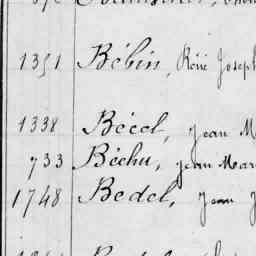 1351 Bébin, Réné Joseph
1338 Bécel, Jean M
733 Béchu, Jean Mar
1748 Bedel, Jean J